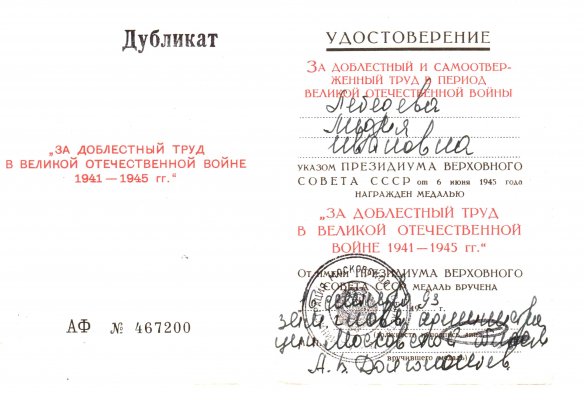 Дубликат
„ЗА ДОБЛЕСТНЫЙ ТРУД
В ВЕЛИКОЙ ОТЕЧЕСТВЕННОЙ ВОЙНЕ
1941—1945 гг.“
АФ № 467200
УДОСТОВЕРЕНИЕ
ЗА ДОБЛЕСТНЫЙ И САМООТВЕР-
ЖЕННЫЙ ТРУД В ПЕРИОД
ВЕЛИКОЙ ОТЕЧЕСТВЕННОЙ ВОЙНЫ
Лебедева
Лидия
Ивановна
УКАЗОМ ПРЕЗИДИУМА ВЕРХОВНОГО
СОВЕТА СССР от 6 июня 1945 года
НАГРАЖДЕН МЕДАЛЬЮ
„ЗА ДОБЛЕСТНЫЙ ТРУД
В ВЕЛИКОЙ ОТЕЧЕСТВЕННОЙ
ВОЙНЕ 1941—1945 гг.“
От имени ПРЕЗИДИУМА ВЕРХОВНОГО
СОВЕТА СССР МЕДАЛЬ ВРУЧЕНА
16 93 г.
зам. главы администра
ции Московской
вручившего медаль)
А. В.